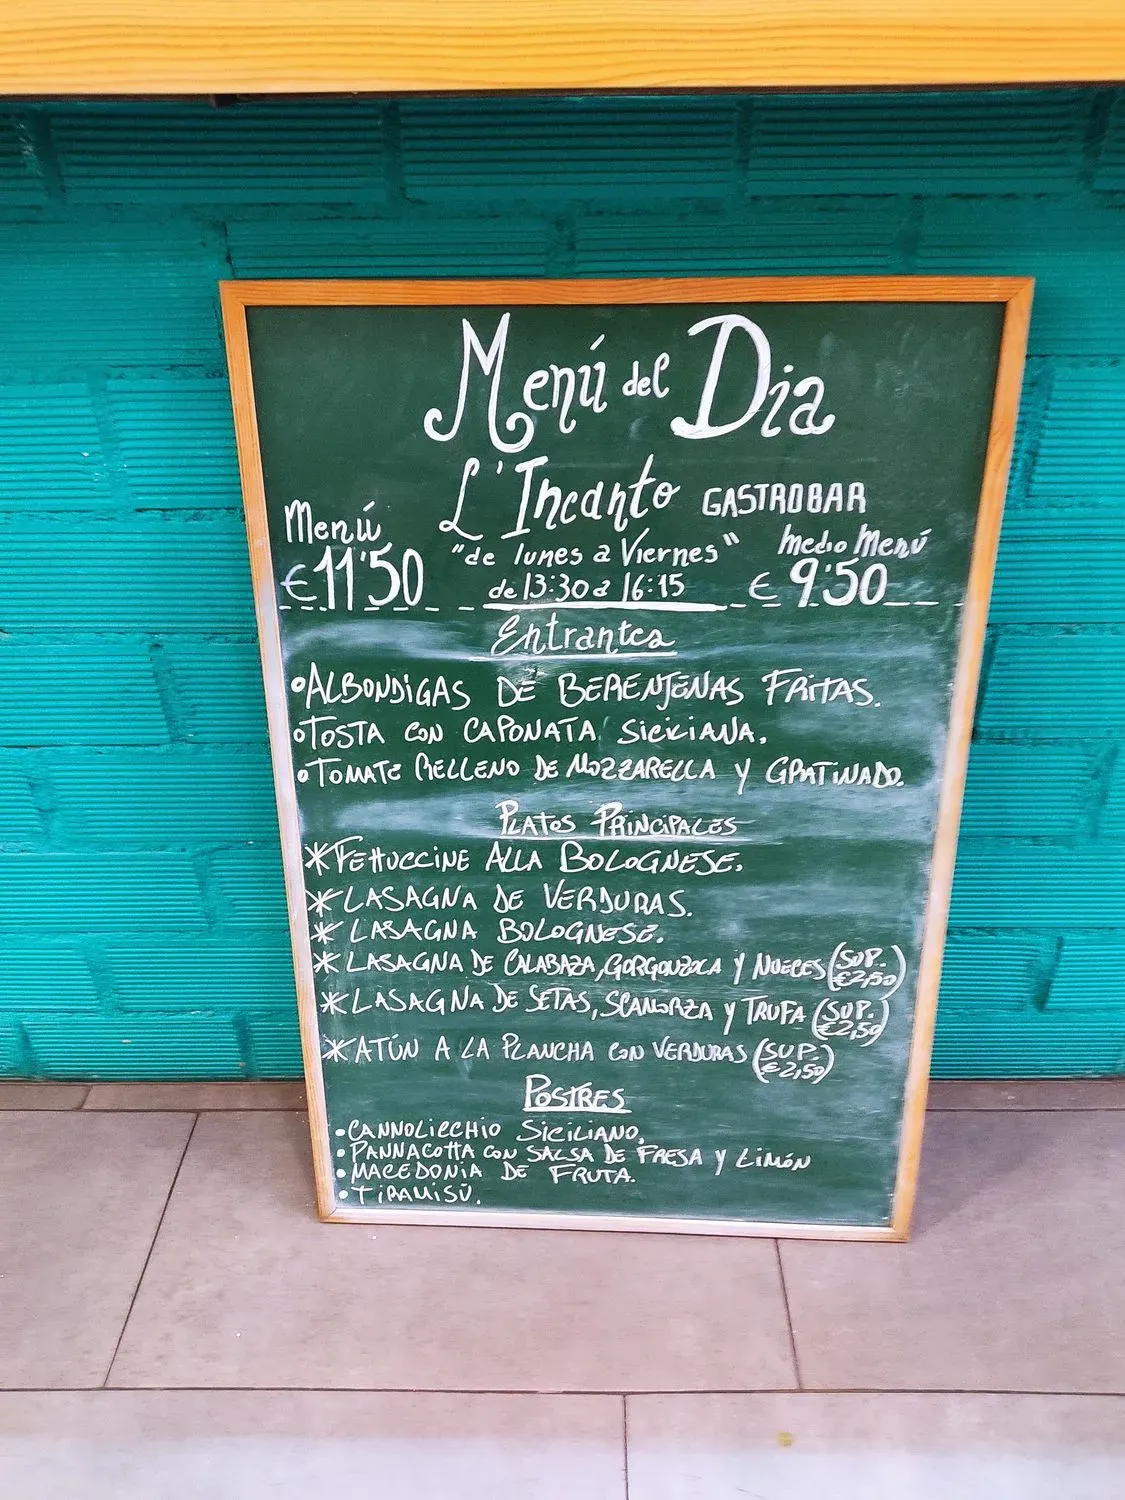 Menú del Dia
L'Incanto GASTROBAR
Menú
€11'50
"de lunes a Viernes"
de 13:30 a 16:15
Medio Menú
€ 9'50
Entrantes
•ALBONDIGAS DE BERENJENAS FRITAS.
•TOSTA CON CAPONATA SICILIANA.
•TOMATE RELLENO DE MOZZARELLA Y GRATINADO.
PLATOS PRINCIPALES
*FETTUCCINE ALLA BOLOGNESE.
*LASAGNA DE VERDURAS.
*LASAGNA BOLOGNESE.
*LASAGNA DE CALABAZA, GORGONZOLA Y NUECES (SUP. €2,50)
*LASAGNA DE SETAS, SCAMORZA Y TRUFA (SUP. €2,50)
*ATÚN A LA PLANCHA CON VERDURAS (SUP. €2,50)
POSTRES
•CANNOLICCHIO SICILIANO.
•PANNACOTTA CON SALSA DE FRESA Y LIMÓN
•MACEDONIA DE FRUTA.
•TIRAMISÙ.